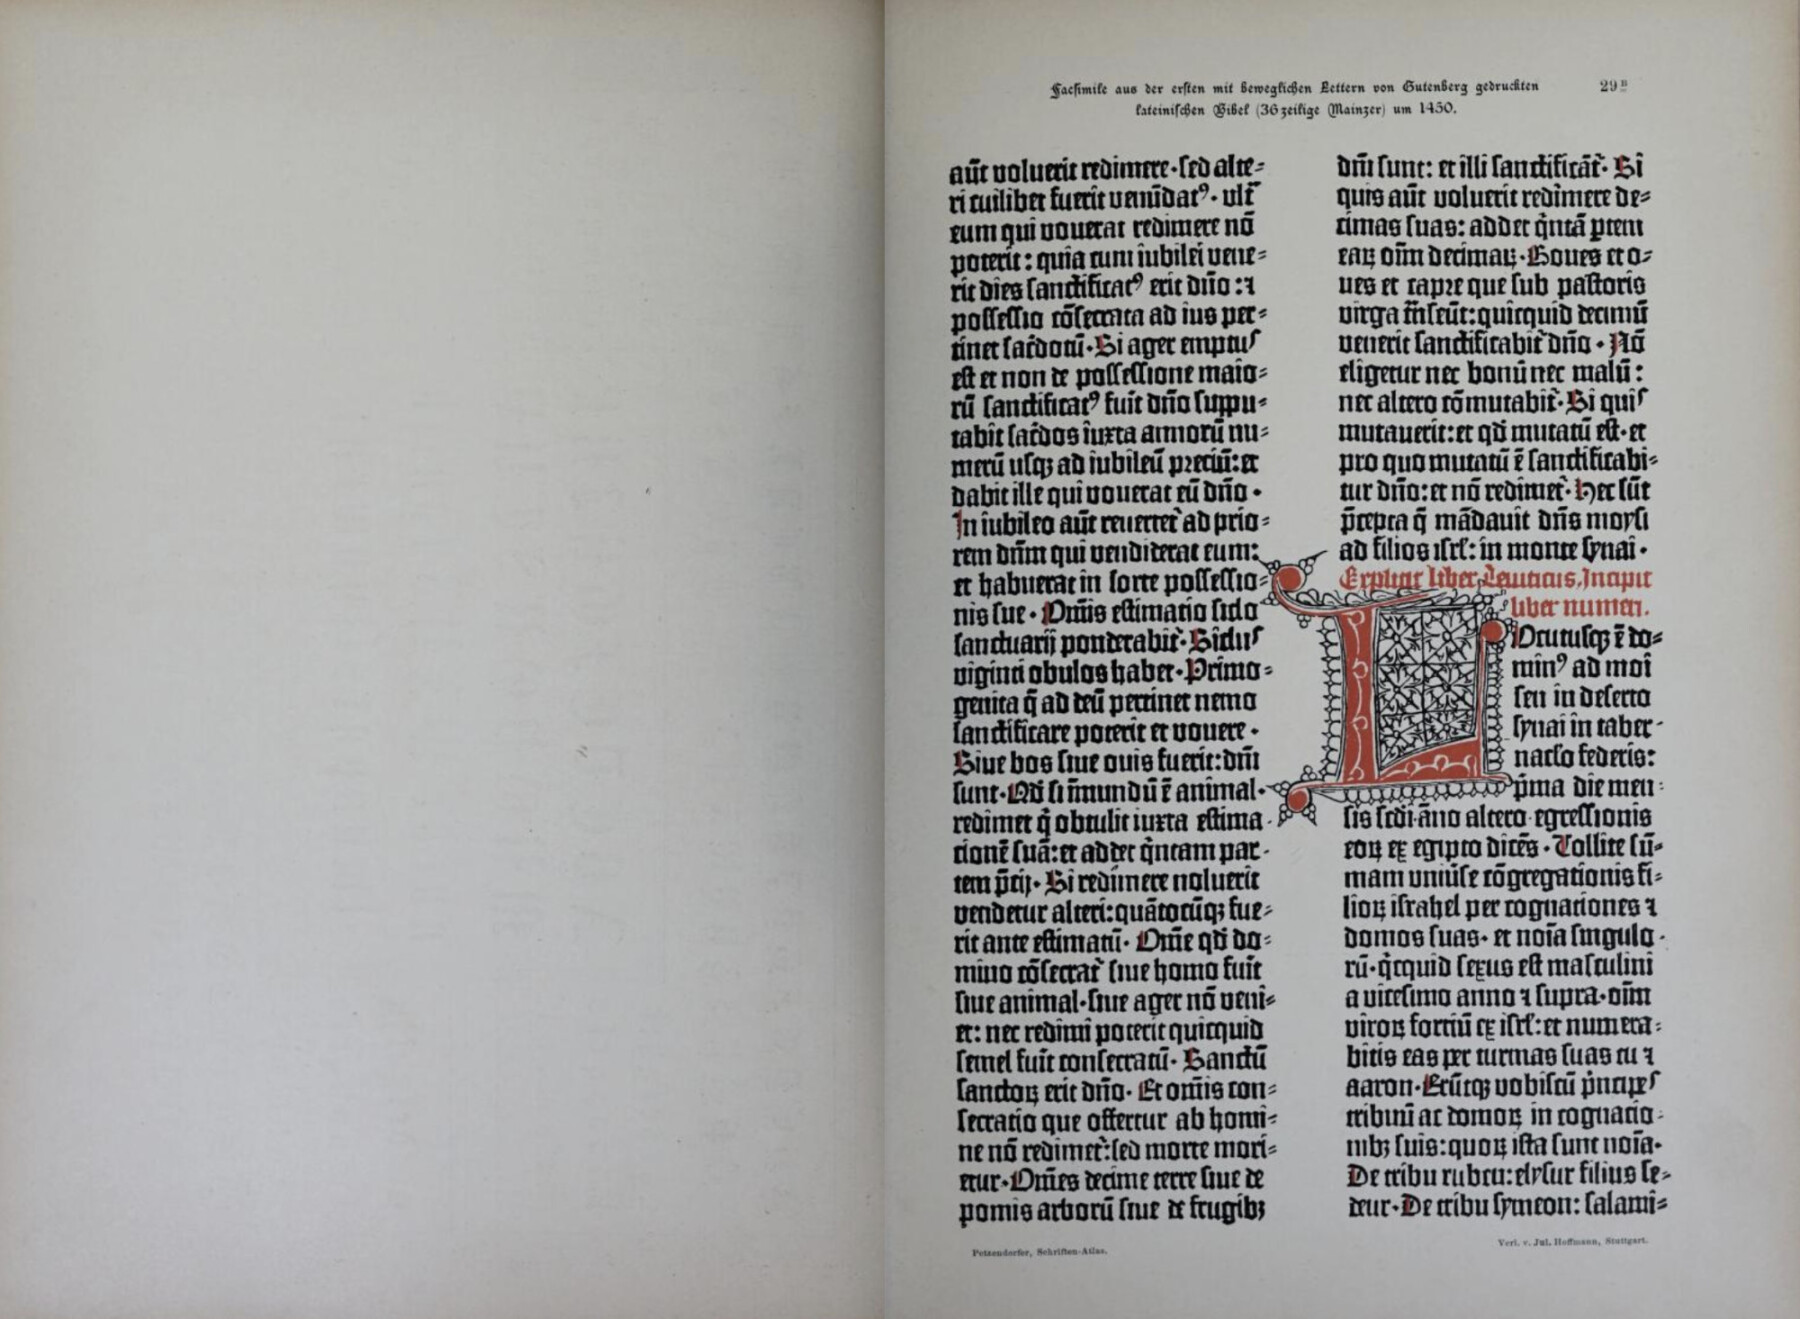 Facsimile aus der ersten mit beweglichen Lettern von Gutenberg gedruckten
lateinischen Bibel (36 zeilige Mainzer) um 1450.
29 B
aūt voluerit redimere·sed alte⸗
ri cuilibet fuerit venūdatꝰ· ultͥ
eum qui vouerat redimere nō
poterit: quia cum iubilei vene⸗
rit dies sanctificatꝰ erit dn̄o: ⁊
possessio cōsecrata ad ius per⸗
tinet sac̄dotū·Si ager emptus
est et non de possessione maio⸗
rū sanctificatꝰ fuit dn̄o suppu⸗
tabit sac̄dos iuxta annorū nu⸗
merū usqꝫ ad iubileū preciū:et
dabit ille qui vouerat eū dn̄o·
In iubileo aūt reuertet᷑ ad prio⸗
rem dn̄m qui vendiderat eum:
et habuerat in sorte possessio⸗
nis sue· Om̄is estimatio siclo
sanctuarij ponderabit᷑·Siclus
viginti obulos habet·Primo⸗
genita q̄ ad deū pertinet nemo
sanctificare poterit et vouere·
Siue bos siue ouis fuerit:dn̄i
sunt·Qd̄ si īmundū ē animal·
redimet q̇ obtulit iuxta estima⸗
tionē suā:et addet q̇ntam par⸗
tem p̄cij· Si redimere noluerit
vendetur alteri:quātocūqꝫ fue⸗
rit ante estimatū· Om̄e qd̄ do⸗
mino cōsecrat᷑ siue homo fuīt
siue animal·siue ager nō veni⸗
et: nec redimi poterit quicquid
semel fuīt consecratū· Sanctū
sanctoꝝ erit dn̄o· Et om̄is con⸗
secratio que offertur ab homi⸗
ne nō redimet᷑:sed morte mori⸗
etur·Om̄es decime terre siue de
pomis arborū siue de frugibꝫ
dn̄i sunt: et illi sanctificāt᷑· Si
quis aūt voluerit redimere de⸗
cimas suas: addet q̇ntā ꝑtem
eaꝝ om̄ decimaꝝ·Boues et o⸗
ues et capre que sub pastoris
virga trāseūt:quicquid decimū
venerit sanctificabit᷑ dn̄o· Nō
eligetur nec bonū nec malū:
nec altero cōmutabit᷑·Si quis
mutauerit:et qd̄ mutatū est·et
pro quo mutatū ē sanctificabi⸗
tur dn̄o:et nō redimet᷑·Hec sūt
p̄cepta q̄ mādauit dn̄s moysi
ad filios isrl̕: in monte synai·
Explicit liber Leuiticus. Incipit
liber numeri.
Locutusqꝫ ē do⸗
minꝰ ad moi
sen in deserto
synai in taber⸗
nac̄lo federis:
p̄ma die men⸗
sis sc̄di āno altero egressionis
eoꝝ ex egipto dicēs· Tollite sū⸗
mam vniūse cōgregationis fi⸗
lioꝝ israhel per cognationes ⁊
domos suas· et noīa singulo⸗
rū·q̇cquid sexus est masculini
a vicesimo anno ⁊ supra·oīm
viroꝝ fortiū ex isrl̕:et numera⸗
bitis eas per turmas suas tu ⁊
aaron·Erūtqꝫ vobiscū ṗncipes
tribuū ac domoꝝ in cognatio⸗
nibꝫ suis:quoꝝ ista sunt noīa·
De tribu ruben:elysur filius se⸗
deur·De tribu symeon: salami⸗
Petzendorfer, Schriften-Atlas.
Verl. v. Jul. Hoffmann, Stuttgart.